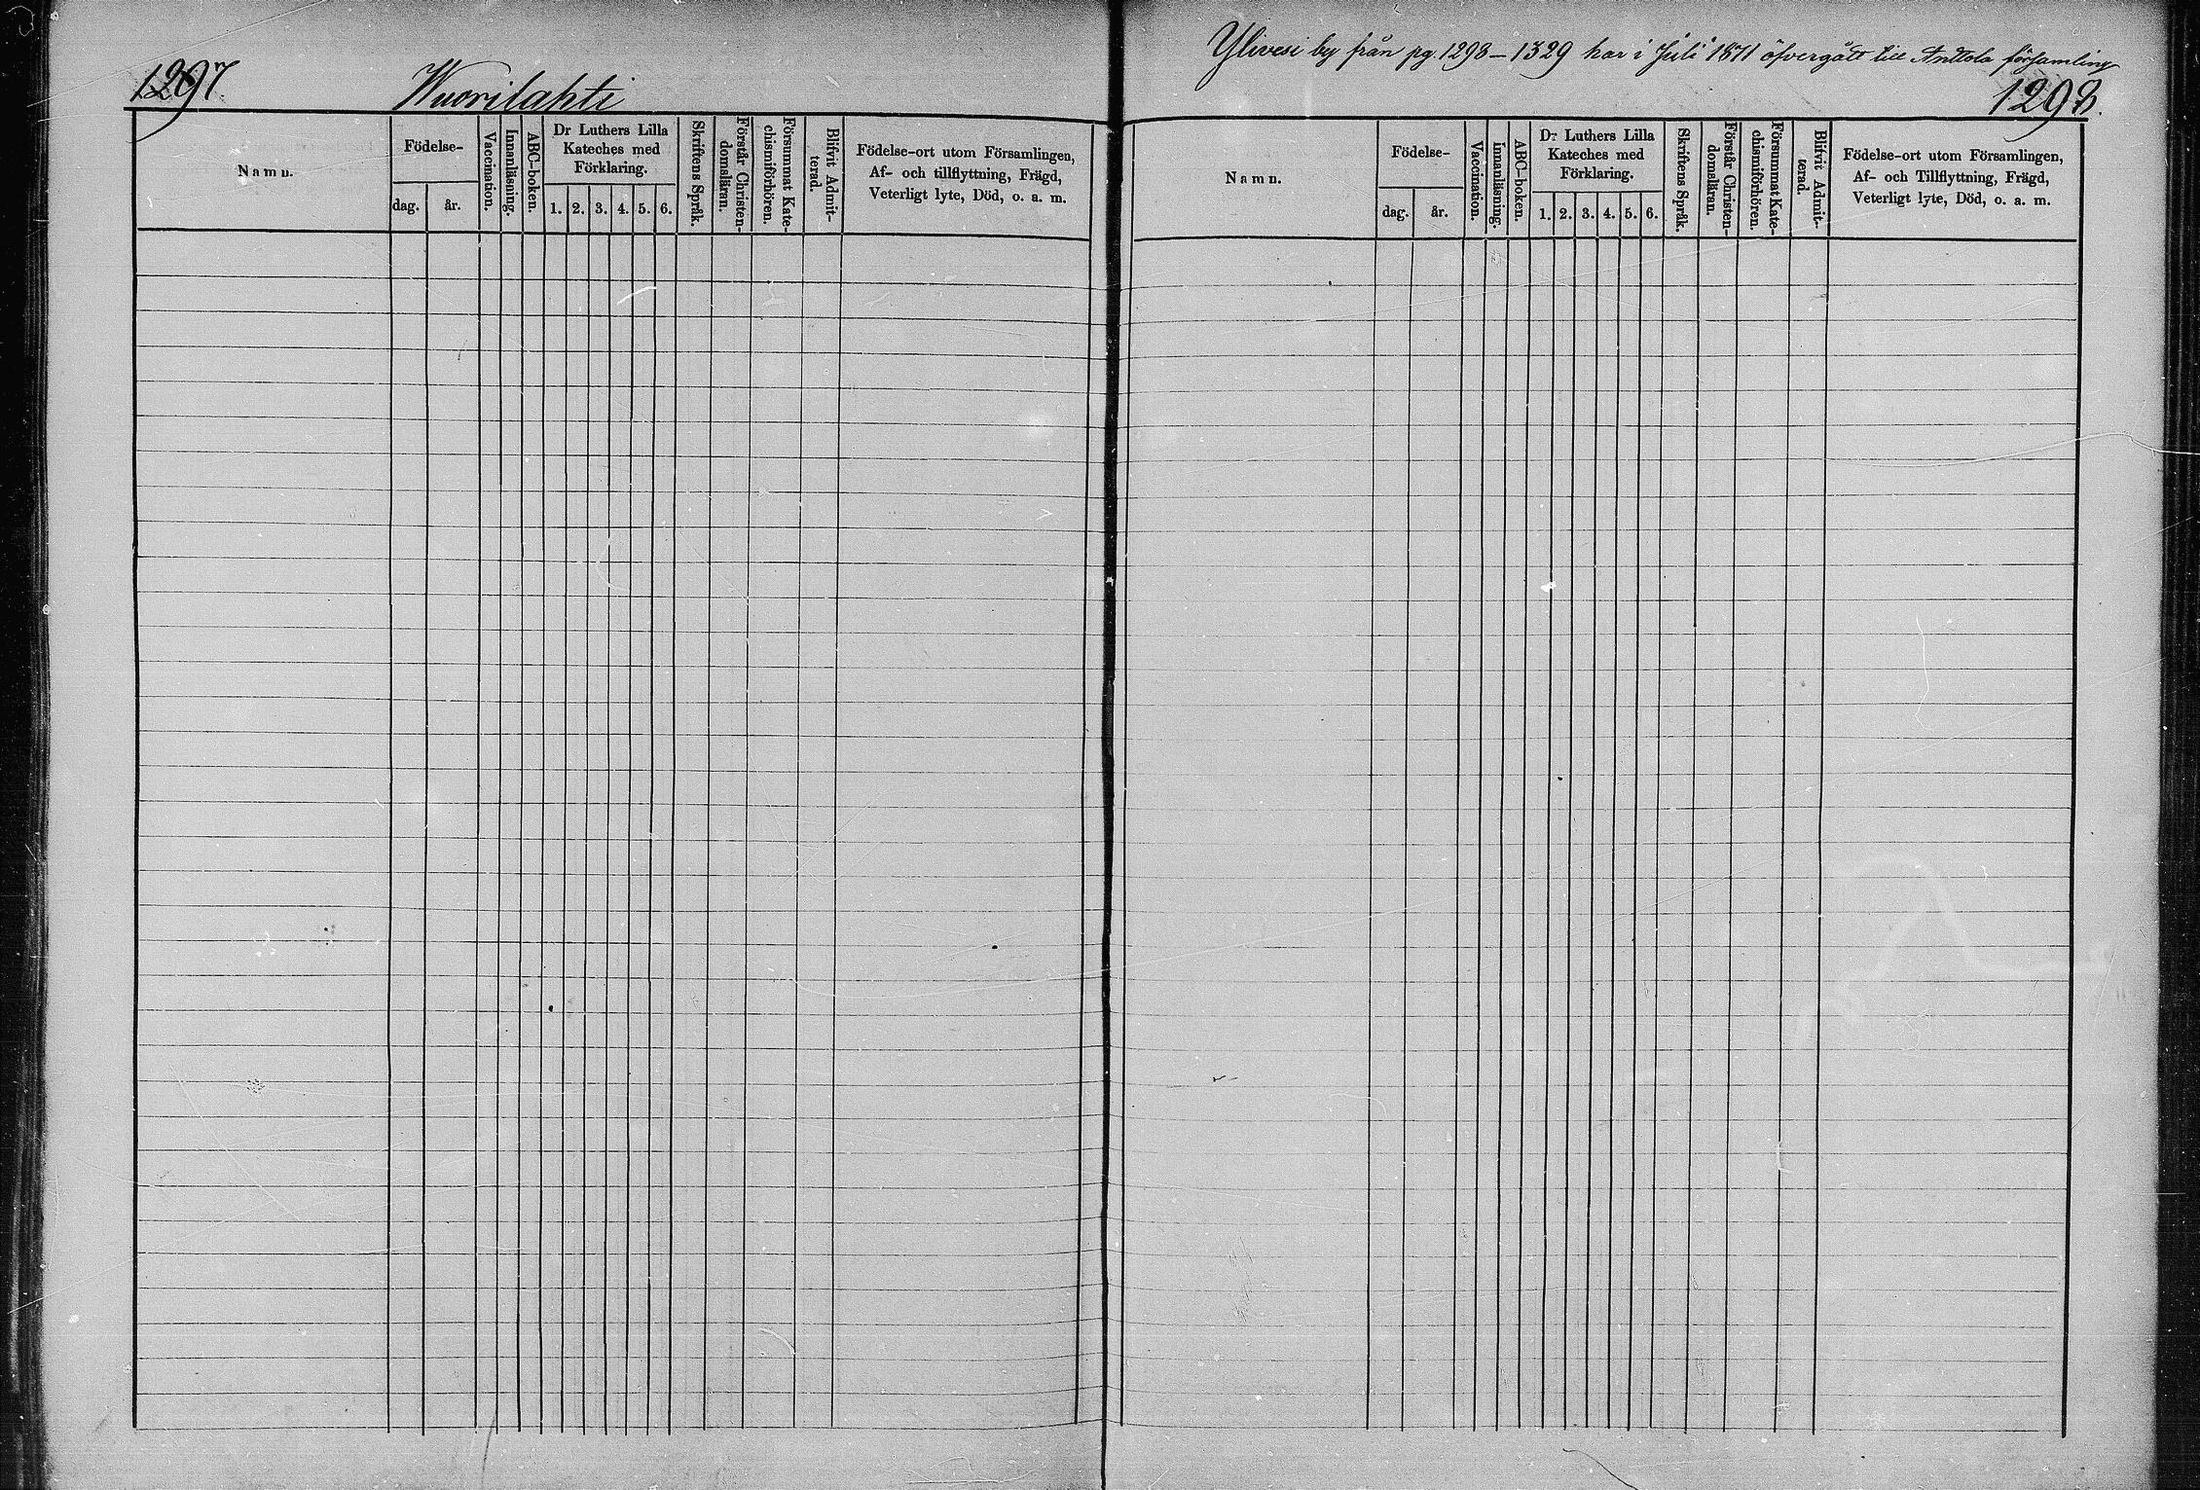 1297.
Wuorilahti
Namn.
Födelse-
dag.
år.
Vaccination.
Innanläsning.
ABC-boken.
Dr Luthers Lilla
Kateches med
Förklaring.
1. 2. 3. 4. 5. 6.
Skriftens Språk.
Förstår Christen-
domsläran.
Försummat Kate-
chismiförhören.
Blifvit Admit-
terad.
Födelse-ort utom Församlingen,
Af- och tillflyttning, Frägd,
Veterligt lyte, Död, o. a. m.
Ylivesi by från pg. 1298-1329 har i Juli 1871 öfvergått till Anttola församling
1298.
Namn.
Födelse-
dag.
år.
Vaccination.
Innanläsning.
ABC-boken.
Dr Luthers Lilla
Kateches med
Förklaring.
1. 2. 3. 4. 5. 6.
Skriftens Språk.
Förstår Christen-
domsläran.
Försummat Kate-
chismiförhören.
Blifvit Admit-
terad.
Födelse-ort utom Församlingen,
Af- och Tillflyttning, Frägd,
Veterligt lyte, Död, o. a. m.